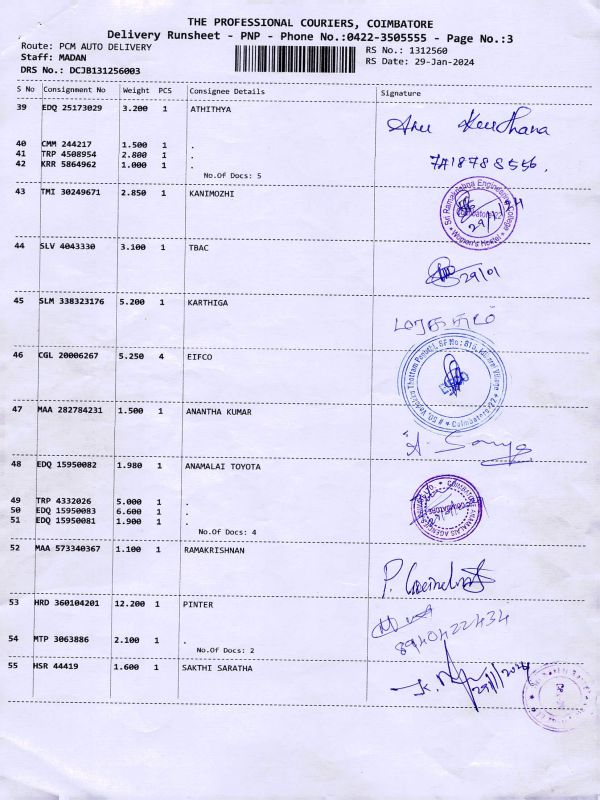 THE PROFESSIONAL COURIERS, COIMBATORE
Delivery Runsheet - PNP - Phone No.:0422-3505555 - Page No.:3
Route: PCM AUTO DELIVERY RS No.: 1312560
Staff: MADAN RS Date: 29-Jan-2024
DRS No.: DCJB131256003
S No Consignment No Weight PCS Consignee Details Signature
39 EDQ 25173029 3.200 1 ATHITHYA
40 CMM 244217 1.500 1 .
41 TRP 4508954 2.800 1 .
42 KRR 5864962 1.000 1 .
No.Of Docs: 5
43 TMI 30249671 2.850 1 KANIMOZHI
Sri Ramakrishna Engineering College
Coimbatore-22
* Women's Hostel *
44 SLV 4043330 3.100 1 TBAC
29/01
45 SLM 338323176 5.200 1 KARTHIGA
46 CGL 20006267 5.250 4 EIFCO
47 MAA 282784231 1.500 1 ANANTHA KUMAR
48 EDQ 15950082 1.980 1 ANAMALAI TOYOTA
49 TRP 4332026 5.000 1 .
50 EDQ 15950083 6.600 1 .
51 EDQ 15950081 1.900 1 .
No.Of Docs: 4
52 MAA 573340367 1.100 1 RAMAKRISHNAN
53 HRD 360104201 12.200 1 PINTER
8940422434
54 MTP 3063886 2.100 1 .
No.Of Docs: 2
55 HSR 44419 1.600 1 SAKTHI SARATHA